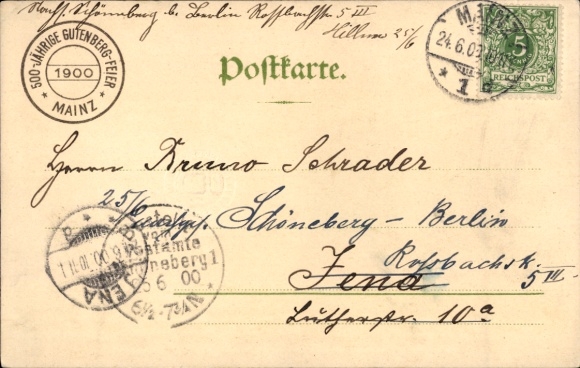 Nach Schöneberg b. Berlin Rossbachstr. 5 III
25/6
500-JÄHRIGE GUTENBERG-FEIER
1900
* MAINZ *
Postkarte.
MAINZ
24.6.00
* 1
5
REICHSPOST
Herrn Bruno Schrader
25/6
Schöneberg - Berlin
Rossbachstr. 5 III
Jena
Lutherstr. 10a
JENA
Schöneberg 1
6 00
6½-7¾N